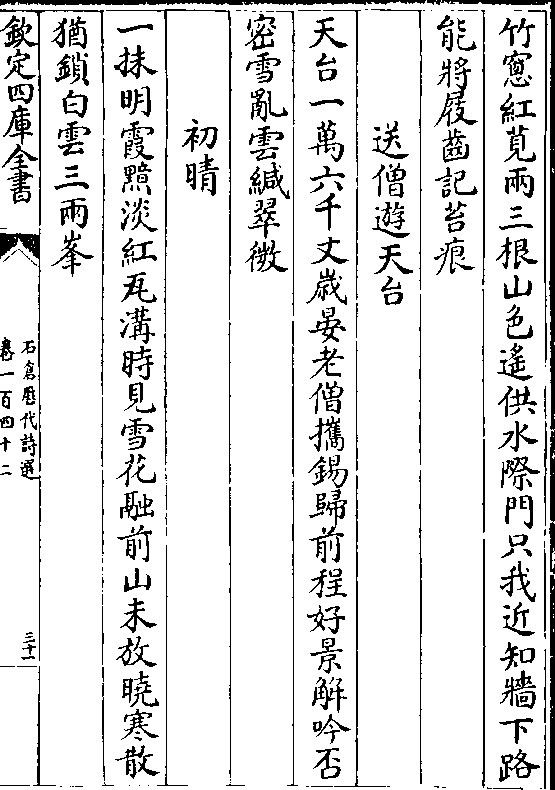 竹窻紅莧兩三根山色遙供水際門只我近知牆下路
能將屐齒記苔痕
送僧遊天台
天台一萬六千丈歳晏老僧攜錫歸前程好景解吟否
密雪亂雲緘翠微
初晴
一抺明霞黯淡紅瓦溝時見雪花融前山未放曉寒散
猶鎖白雲三兩峯
欽定四庫全書
石倉歷代詩選
卷一百四十二
三十一